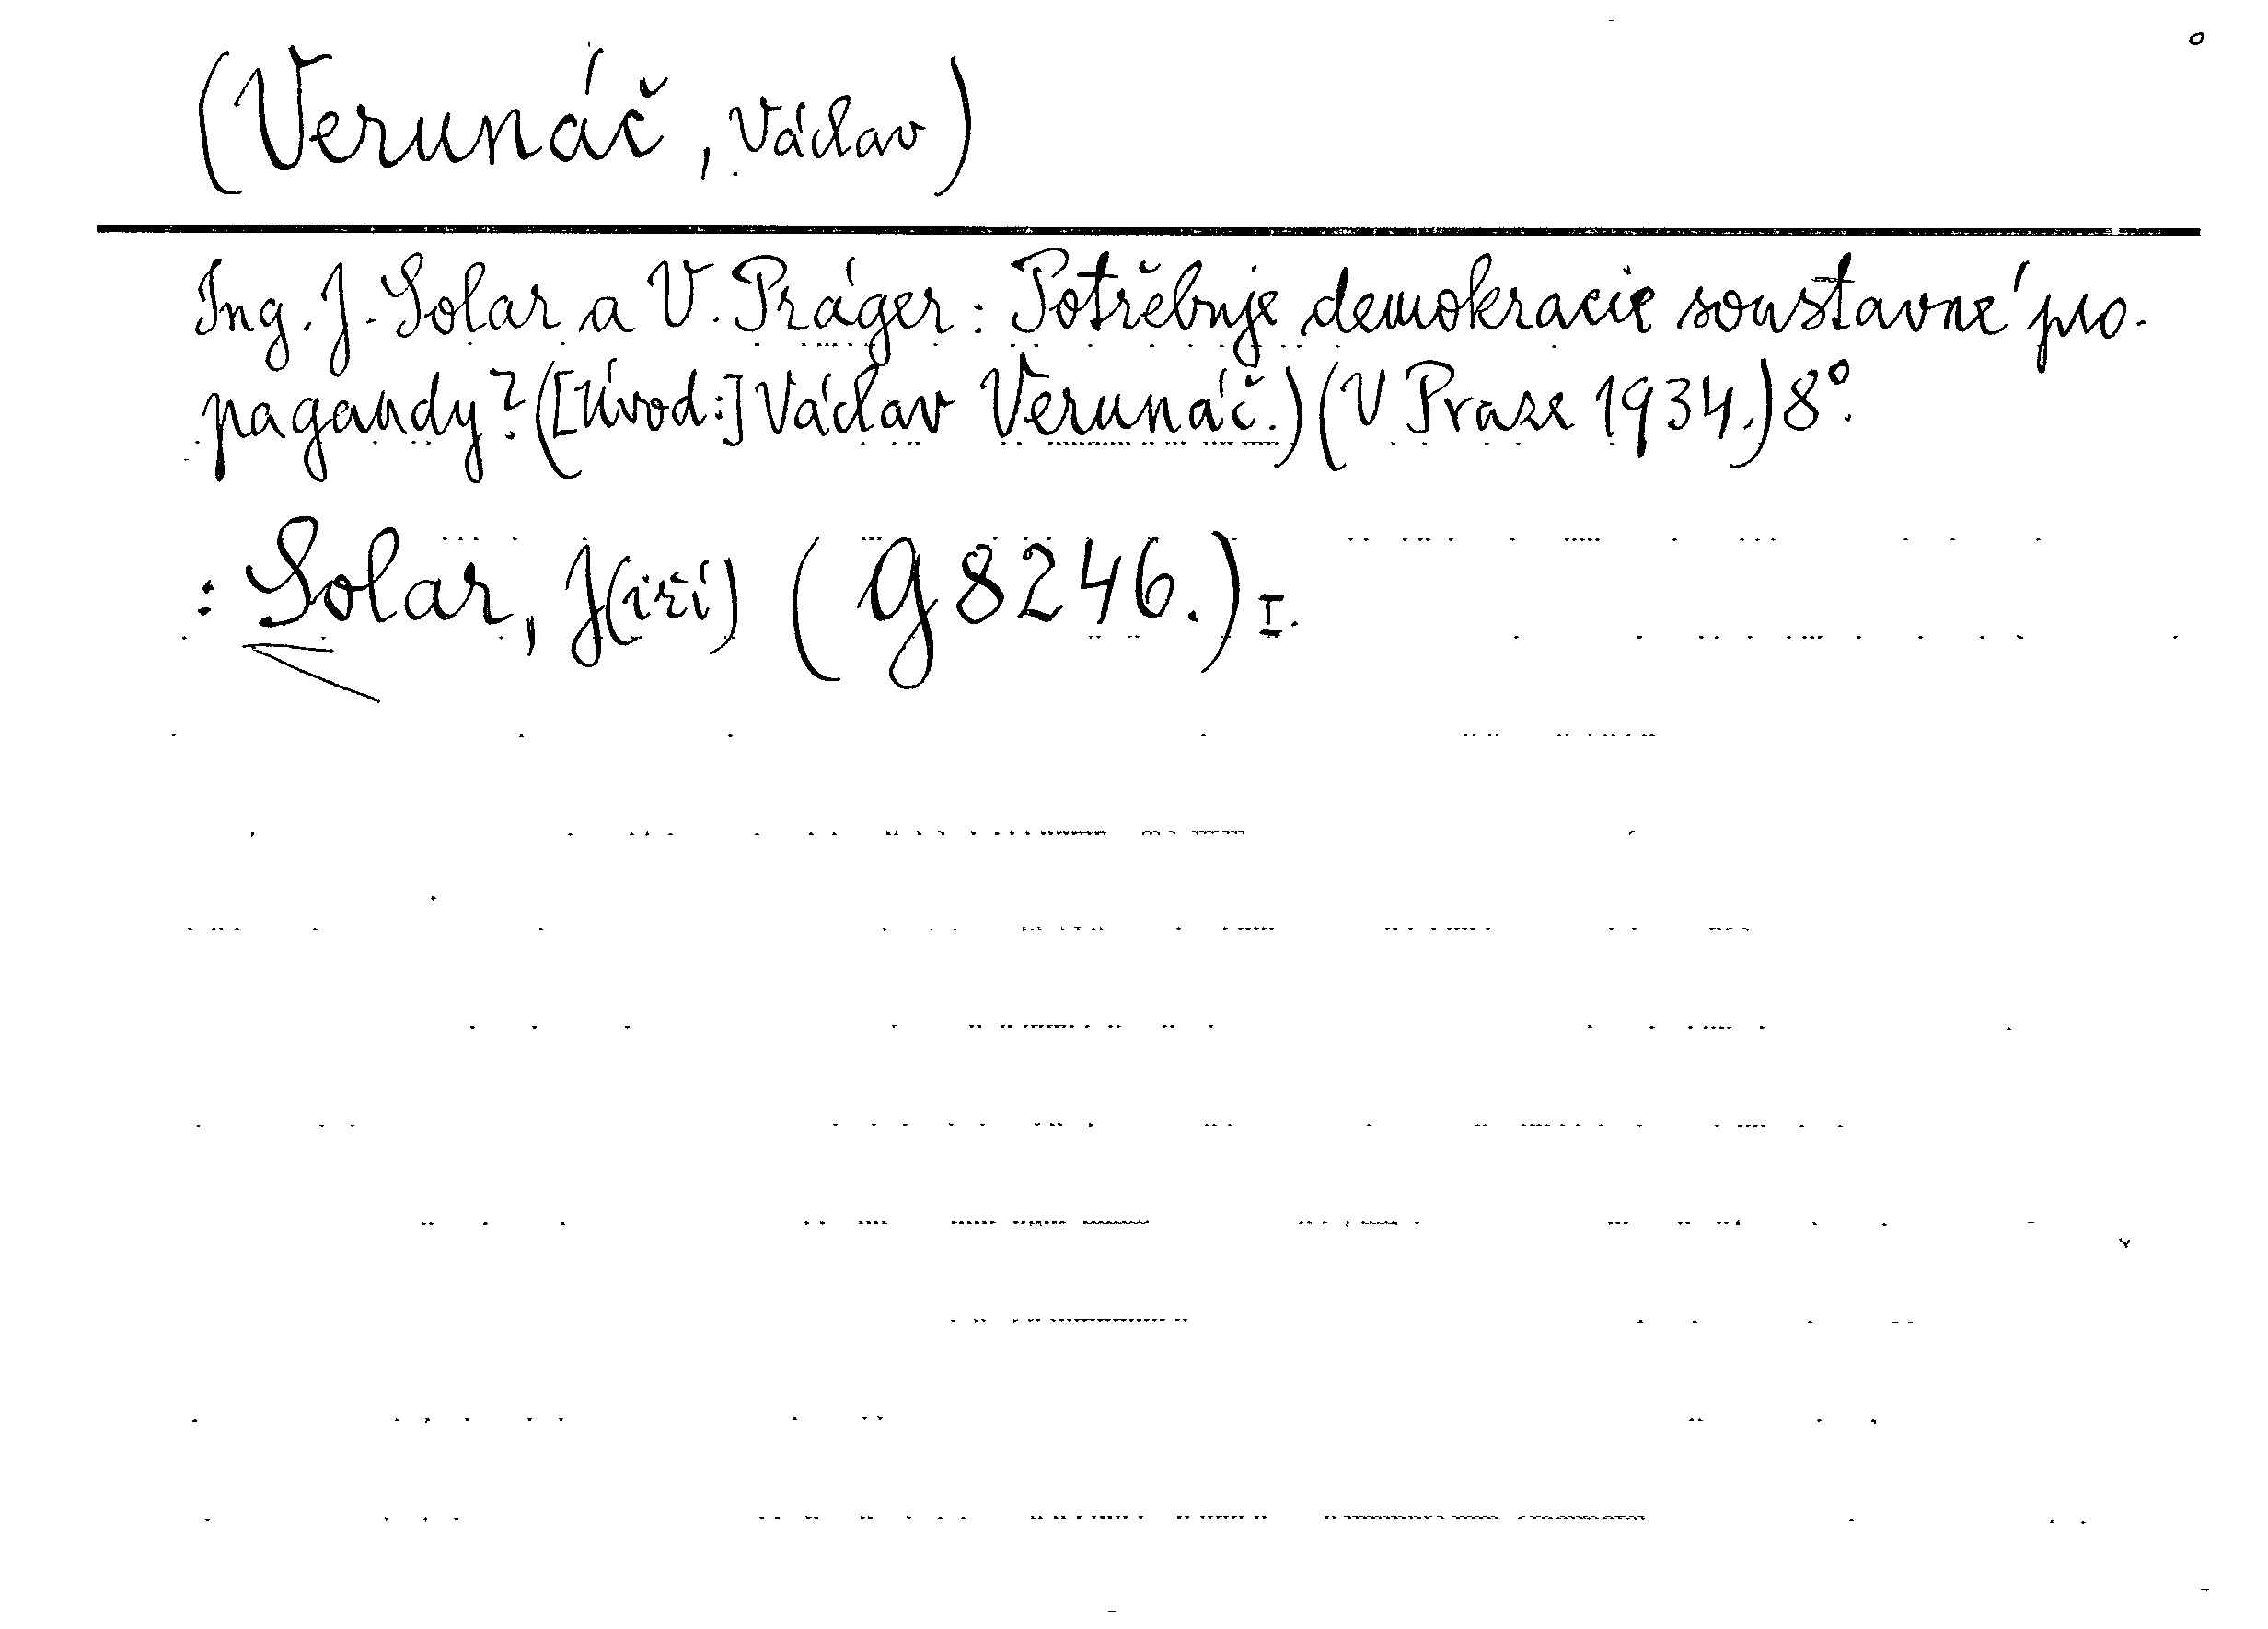 (Verunáč, Václav)
Ing. J. Solar a V. Práger: Potřebuje demokracie soustavné pro-
pagandy? ([Úvod:] Václav Verunáč.) (V Praze 1934.) 8°.
: Solar, J(iří) (G 8246.) I.